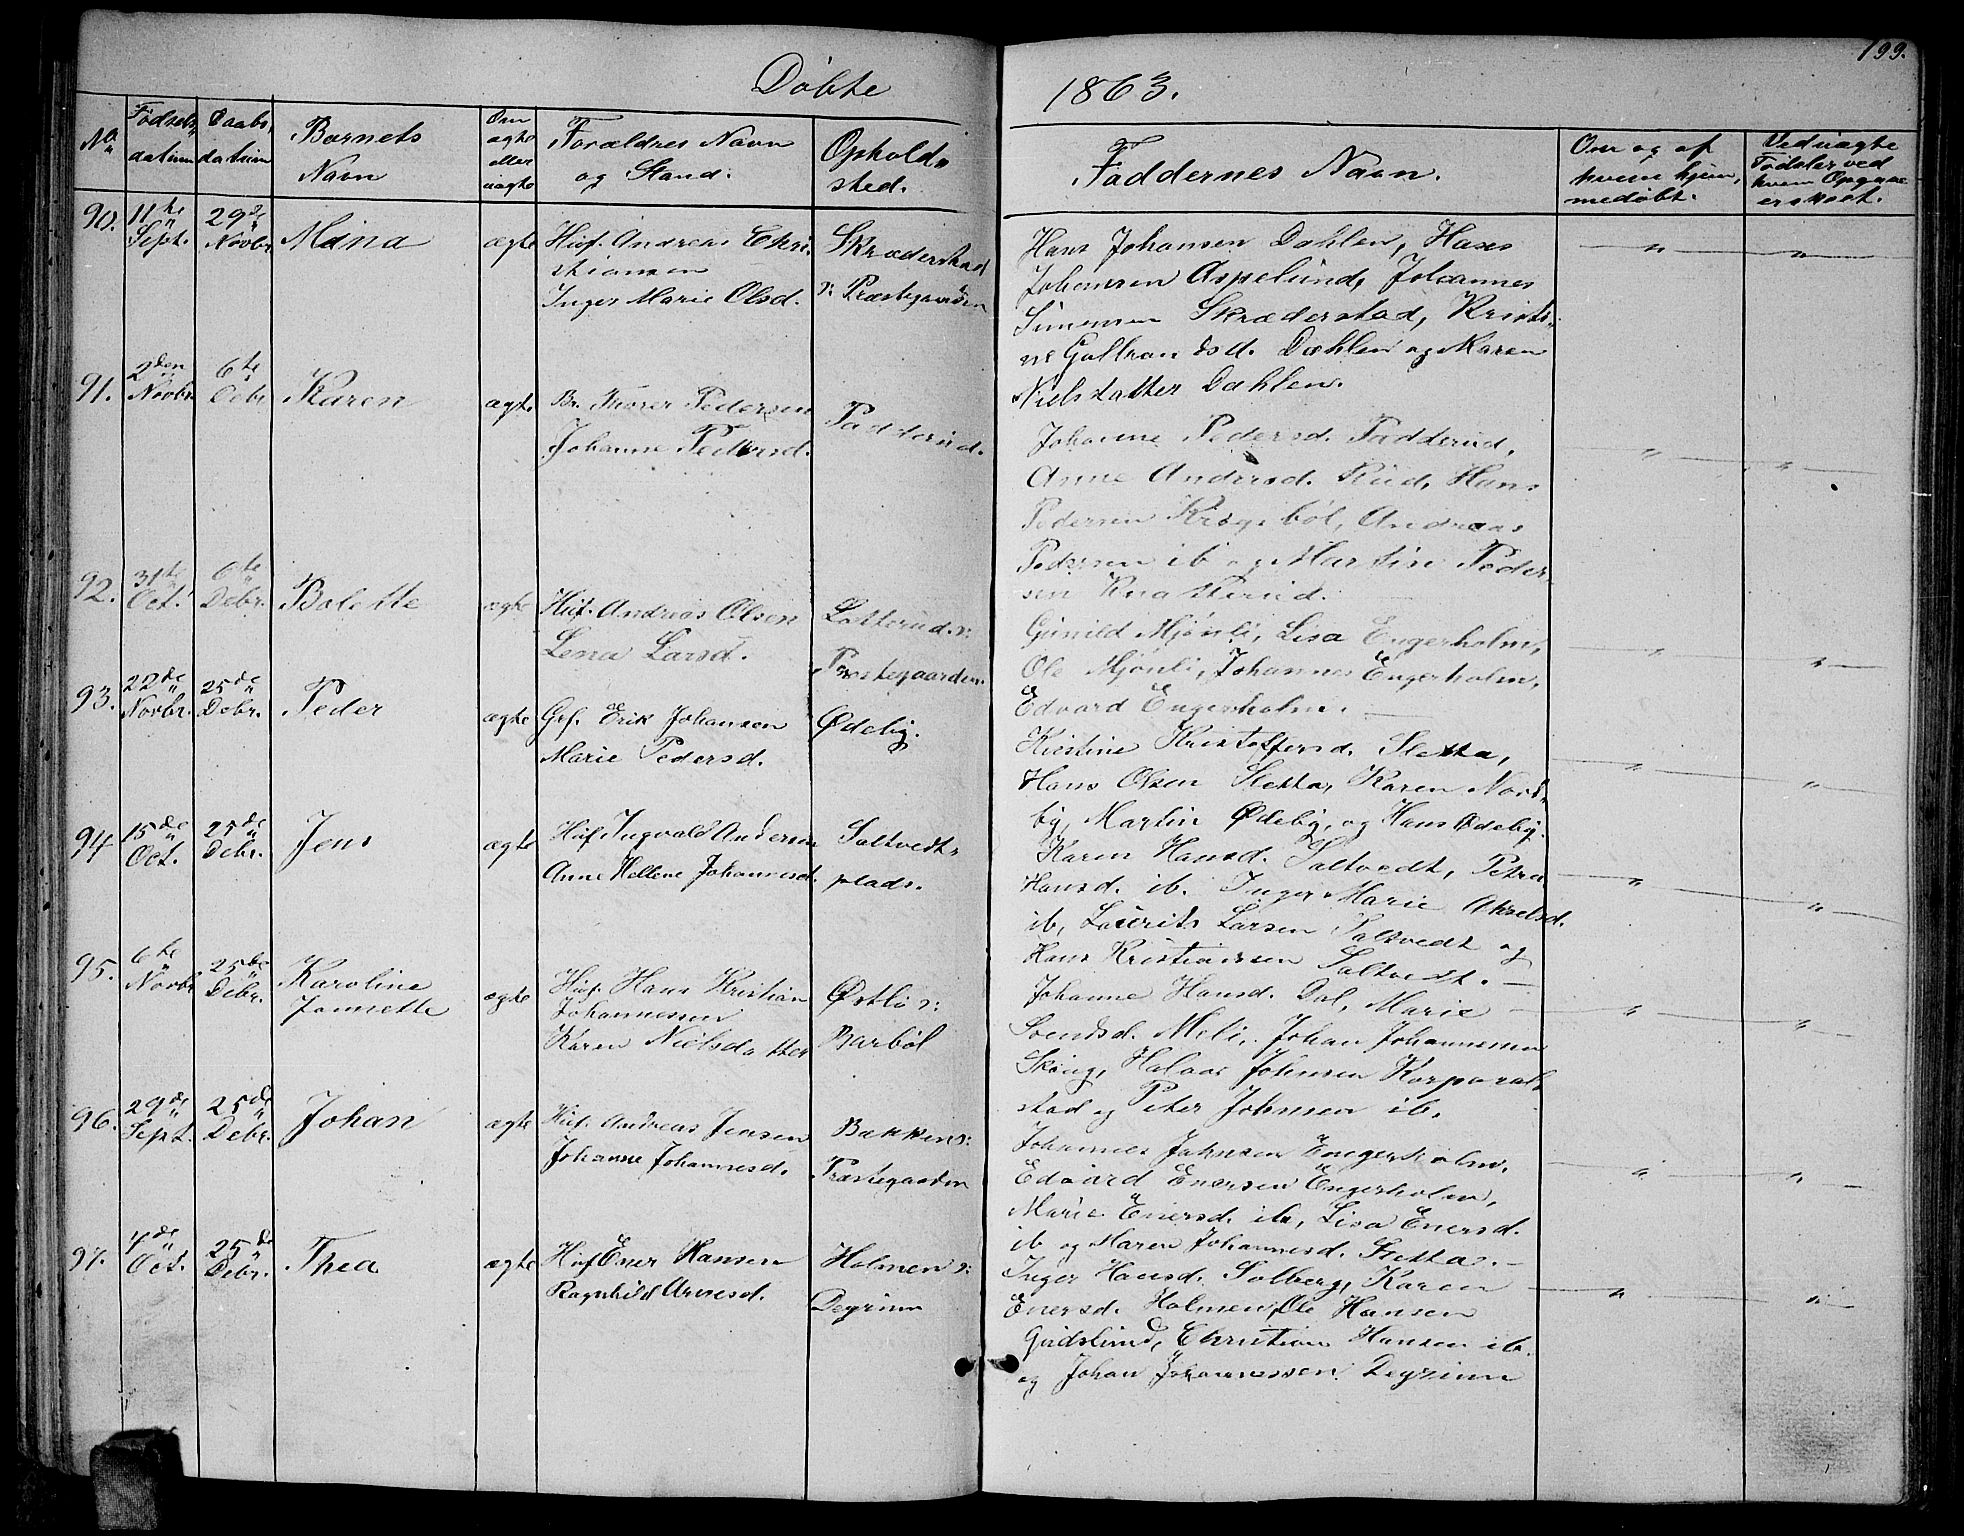 199.
Døbte 1863.
No
Fødsels datum
Daabs datum
Barnets Navn
Om ægte eller uægte
Forældres Navn og Stand.
Opholdssted.
Faddernes Navn.
Om og af hvem hjemmedøbt.
Ved uægte Fødsler ved hvem Opgave er skeet.
90. 11te Sept. 29de Novbr. ægte
Huf. Andreas Christiansen
Inger Marie Olsd.
Skræderstad
s: Præstegaarden
Hans Johansen Dahlen, Hans
Johansen Aspelund, Johannes
Simensen Skræderstad, Kristi-
ne Gulbrandsd. Dahlen og Maren
Nielsdatter Dahlen.
91. 2den Novbr. 6te Debr. Karen ægte
Br. Thorer Pedersen
Johanne Pedersd.
Fadderud.
Johanne Pedersd. Fadderud,
Anne Andersd. Rud, Hans
Pedersen Krogsbøl, Andreas
Pedersen ib og Martin Peder-
sen Knatterud.
92. 31te Oct. 6te Debr. Bolette ægte
Huf. Andreas Olsen
Lena Larsd.
Lotterud s:
Præstegaarden.
Gunild Mjønli, Lisa Engerholm,
Ole Mjønli, Johannes Engerholm,
Edvard Engerholm.
93. 22de Novbr. 25de Debr. Peder ægte
Grf. Erik Johansen
Marie Pedersd.
Ødeby.
Kirstine Kristoffersd. Sletta,
Hans Olsen Sletta, Karen Nord-
by, Martin Ødeby, og Hans Ødeby.
94. 15de Oct. 25de Debr. Jens ægte
Huf. Ingvald Andersen
Anne Hellene Johannesd.
Saltvedt-
plads.
Karen Hansd. Saltvedt, Petra
Hansd. ib. Inger Marie Akselsd.
ib, Laurits Larsen Saltvedt og
Hans Kristiansen Saltvedt.
95. 6te Novbr. 25de Debr. Karoline
ægte
Huf. Hans Kristian
Johannessen
Karen Nielsdatter
Østli s:
Barbøl
Johanne Hansd. Dal, Marie
Svendsd. Meli, Johan Johannessen
Skoug, Halvor Johnsen Korporal-
stad og Peter Johnsen ib.
96. 29de Sept. 25de Debr. Johan ægte
Huf. Andreas Jensen
Johanne Johannesd.
Bakken s:
Præstegaarden
Johannes Johnsen Engerholm.
Edvard Enersen Engerholm,
Marie Enersd. ib, Lisa Enersd.
ib og Maren Johannesd. Sletta.
97. 4de Oct. 25de Debr. Thea ægte
Huf Ener Hansen
Ragnhild Arnesd.
Holmen s:
Degrum
Inger Hansd. Solberg, Karen
Enersd. Holmen, Ole Hansen
Gudslund, Christian Hansen ib.
og Johan Johannessen Degrum